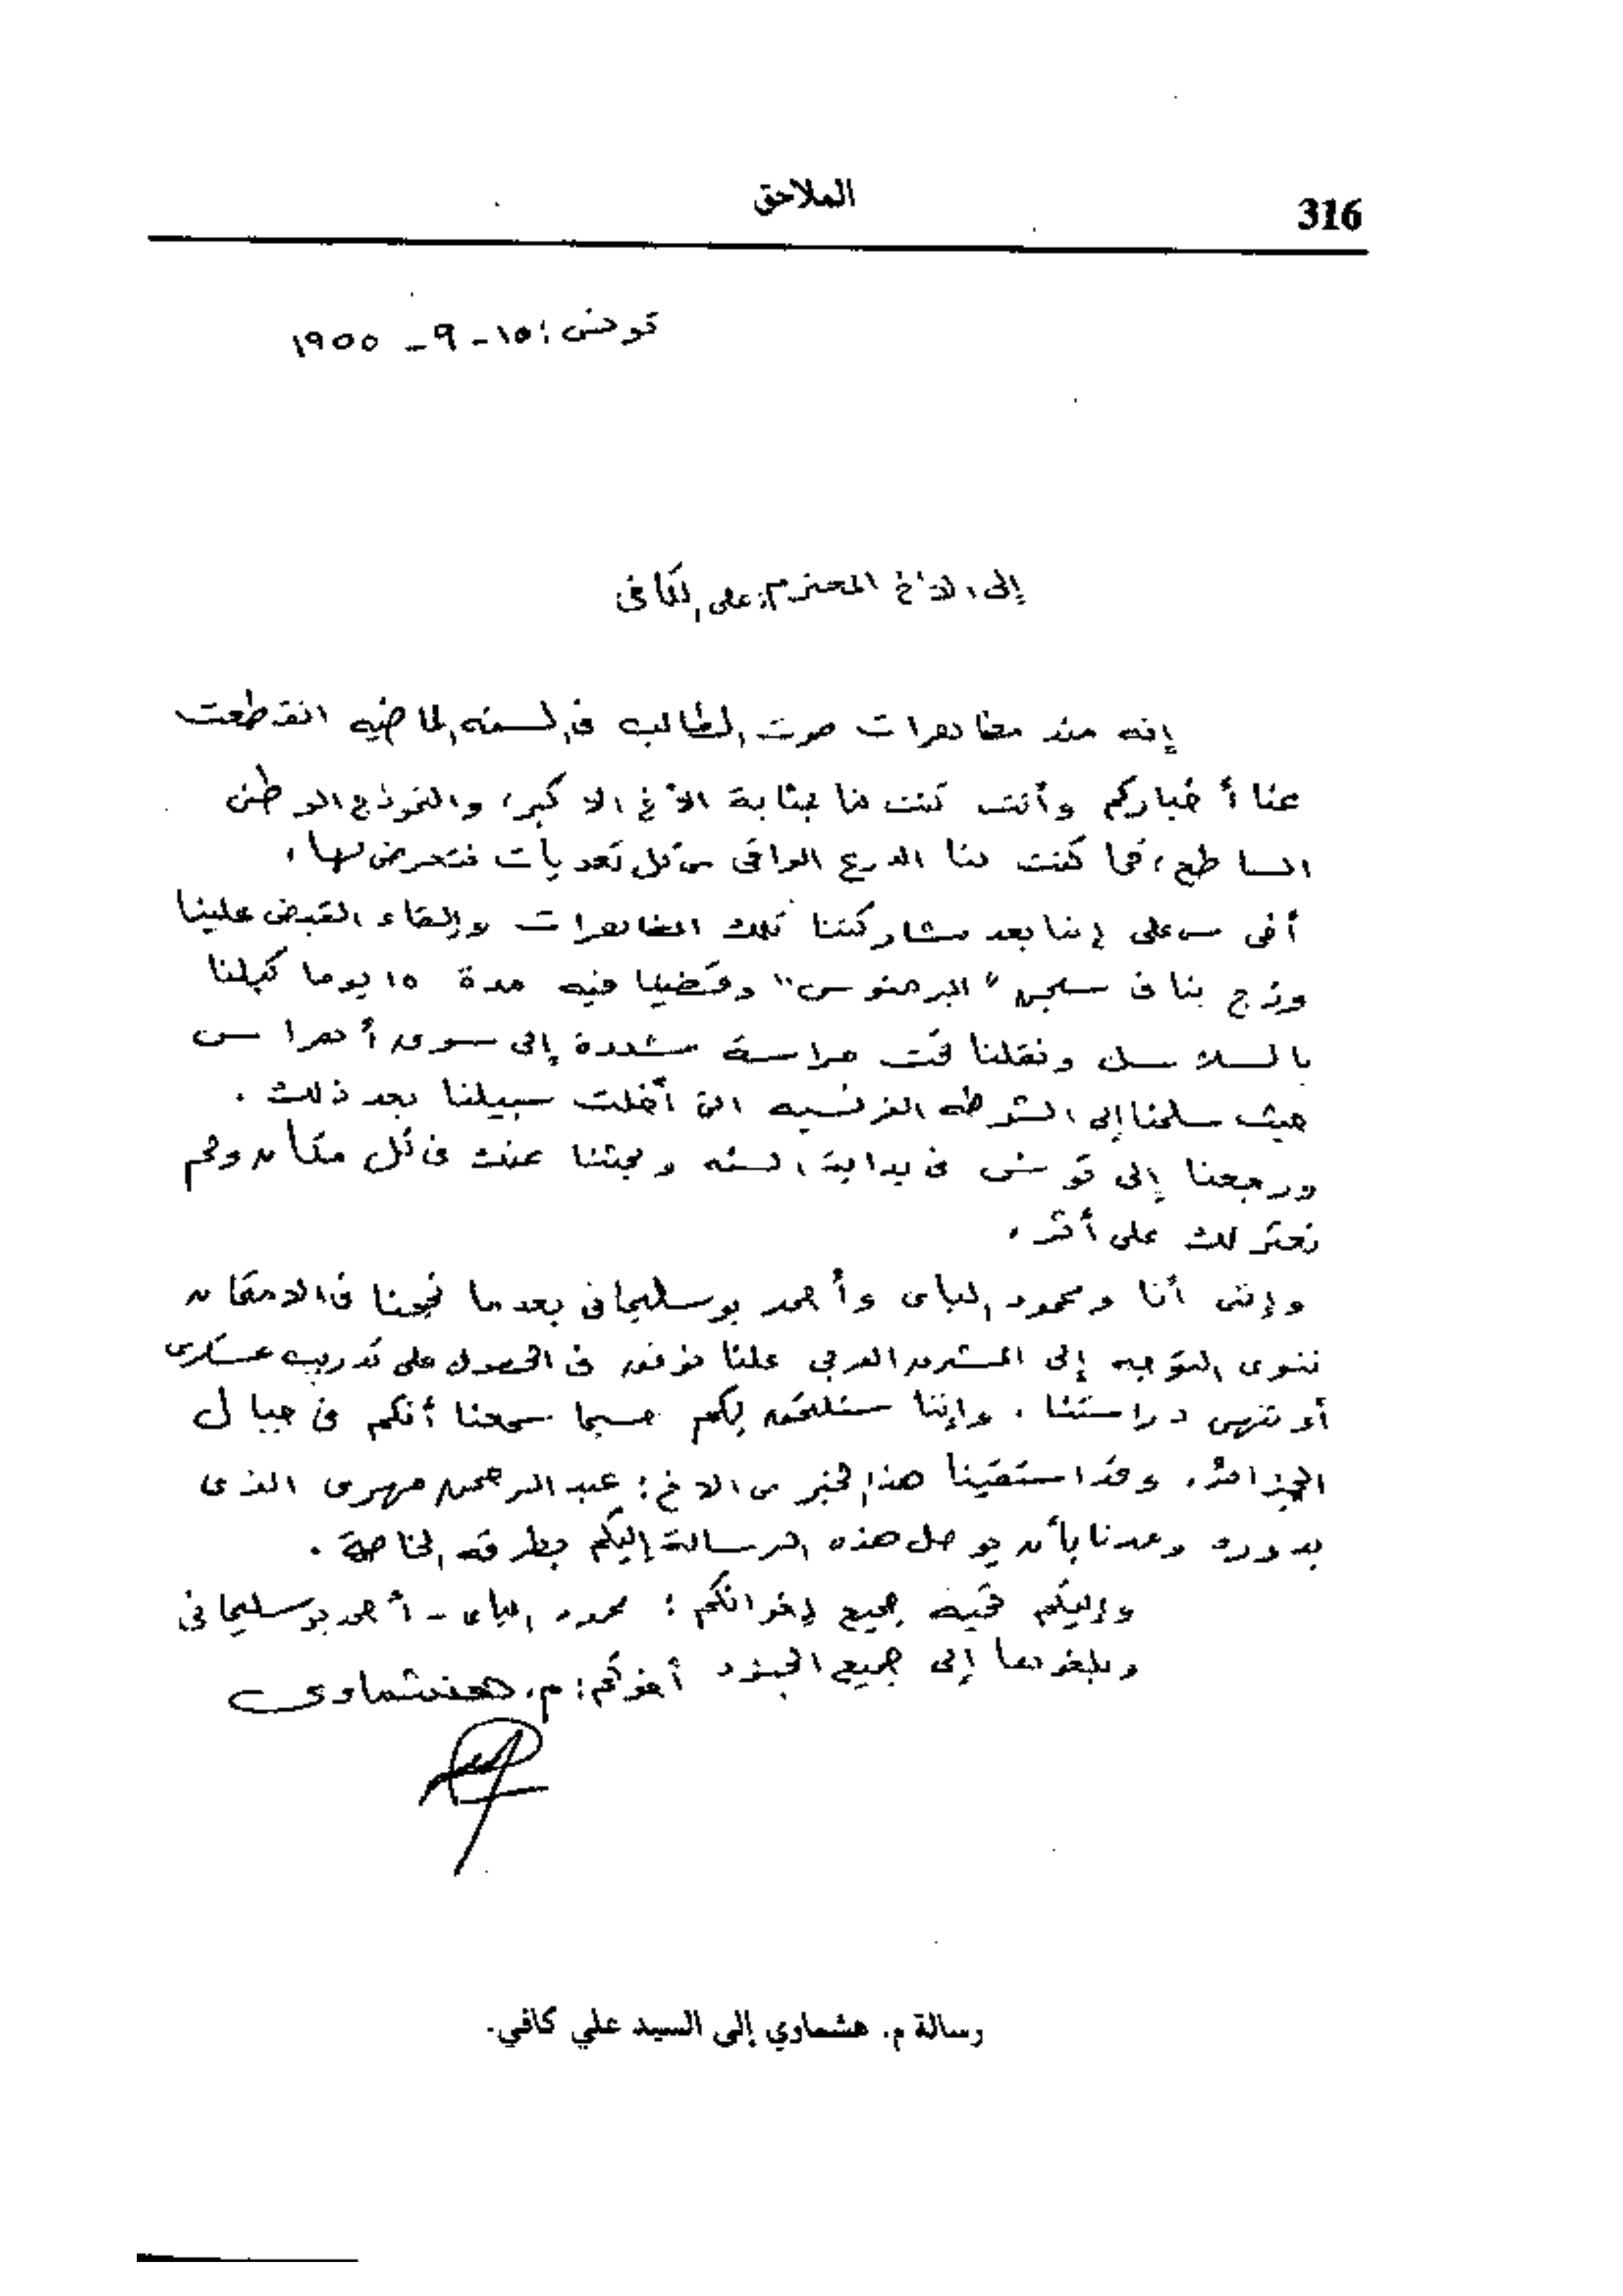 316
الملاحق
تونس: ١٥ - ٩ - ١٩٥٥
إلى الأخ المحترم: على الكافى
إنه منذ مظاهرات صوت الطالب فى السنه الماضيه انقطعت
عنا أخباركم وأنت كنت لنا بمثابة الأخ الاكبر، والنموذج الوطنى
الساطع، كما كنت لنا الدرع الواقى من كل تعديات نتعرض لها.
أخى سى على إننا بعد مشاركتنا تلك المظاهرات وإلقاء القبض علينا
وزج بنا فى سجن "البرمنوس" وقضينا فيه مدة ١٥ يوما كبلنا
بالسلاسل ونقلنا تحت حراسة مشددة إلى سوق أهراس
حيث سلمنا إلى الشرطه الفرنسيه التى أخلت سبيلنا بعد ذلك.
ورجعنا إلى تونس فى بداية السنه وبحثنا عنك فى كل مكان ولم
نعثر لك على أثر.
وإننى أنا ومحمود الباى وأحمد بوسليمانى بعدما نجحنا فى الامتحان
ننوى التوجه إلى المشرق العربى علنا نوفق فى الحصول على تدريب عسكرى
أو ننهى دراستنا. وإننا سنلتحق بكم حسبما سمعنا أنكم فى جبال
الجزائر. وقد استقينا هذا الخبر من الاخ: عبد الرحمن مهرى الذى
بدوره وعدنا بأن يوصل هذه الرسالة إليكم بطرقه الخاصة.
وإليكم تحية جميع إخوانكم: محمود الباى - أحمد بوسليمانى
وبلغوها إلى جميع الجنود أخوكم: م. هشماوى
رسالة م. هشماوي إلى السيد علي كافي.